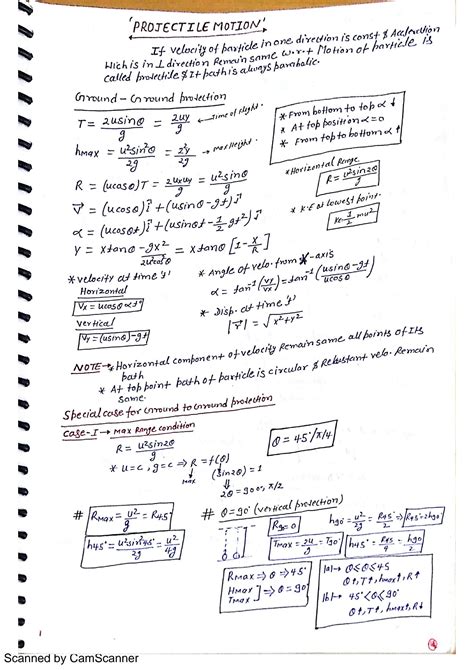 'PROJECTILE MOTION'
If velocity of particle in one direction is const & Acceleration
which is in ⊥ direction Remain same w.r.t Motion of particle is
called projectile & It path is always parabolic.
Ground - Ground projection
T = 2usinθ/g = 2uy/g ← Time of flight.
hmax = u²sin²θ/2g = /2g → max Height.
R = (ucosθ)T = 2uxuy/g = u²sin2θ/g
* From bottom to top α ↓
* At top position α = 0
* From top to bottom α ↑
* Horizontal Range
R = u²sin2θ/g
* K.E at lowest point.
K = 1/2 mu²
V = (ucosθ)i + (usinθ - gt)j
α = (ucosθt)i + (usinθt - 1/2 gt²)j
Y = xtanθ - gx²/2u²cos²θ = xtanθ [1 - x/R]
* velocity at time 't'
Horizontal
Vx = ucosθ
Vertical
Vy = (usinθ) - gt
* Angle of velo. from X-axis
α = tan⁻¹(Vy/Vx) = tan⁻¹(usinθ - gt/ucosθ)
* Disp. at time 't'
|r| = √x²+y²
NOTE → * Horizontal component of velocity Remain same all points of Its
path
* At top point path of particle is circular & velo. Remain
same.
Special case for Ground to Ground projection
Case-I → Max Range condition
R = u²sin2θ/g
* u = c, g = c ⇒ R = f(θ)
max (sin2θ) = 1
2θ = 90°, π/2
θ = 45°/π/4
# Rmax = u²/g = R45°
h45° = u²sin²45°/2g = u²/4g
# θ = 90° (vertical projection)
R90 = 0
Tmax = 2u/g = T90°
h90 = u²/2g = R45°/2 ⇒ R45° = 2h90
h45° = R45/4 = h90/2
Rmax ⇒ θ ⇒ 45°
Hmax
Tmax ] ⇒ θ = 90°
|a| → 0 ≤ θ ≤ 45
θ↑, T↑, hmax↑, R↑
|b| → 45° < θ ≤ 90
θ↑, T↑, hmax↑, R↓
Scanned by CamScanner